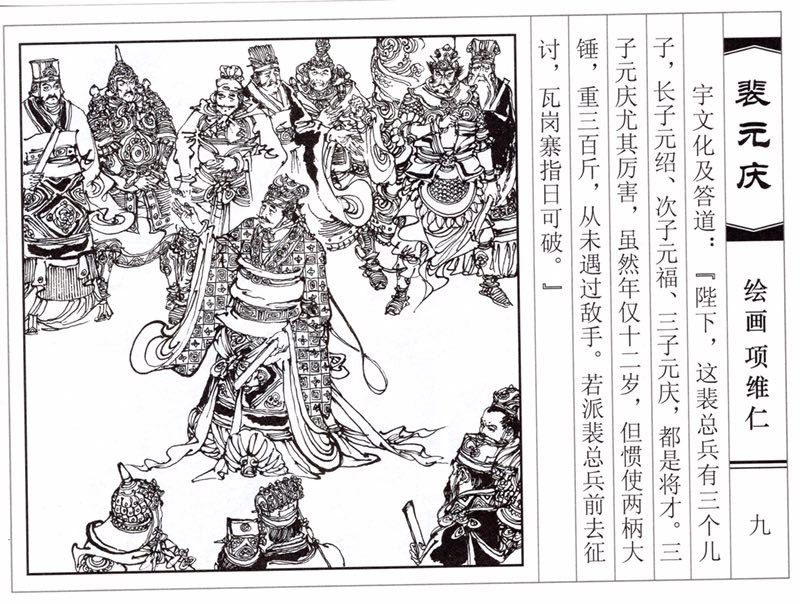 裴元庆
绘画 项维仁
九
宇文化及答道：『陛下，这裴总兵有三个儿
子，长子元绍、次子元福、三子元庆，都是将才。三
子元庆尤其厉害，虽然年仅十二岁，但惯使两柄大
锤，重三百斤，从未遇过敌手。若派裴总兵前去征
讨，瓦岗寨指日可破。』